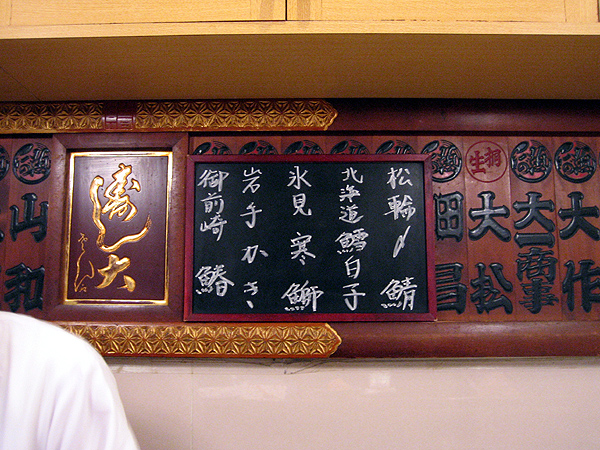 松輪〆鯖
北海道鱈白子
氷見寒鰤
岩手かき
御前崎鰆
寿し大
山和
田昌
大松
大一商事
大作